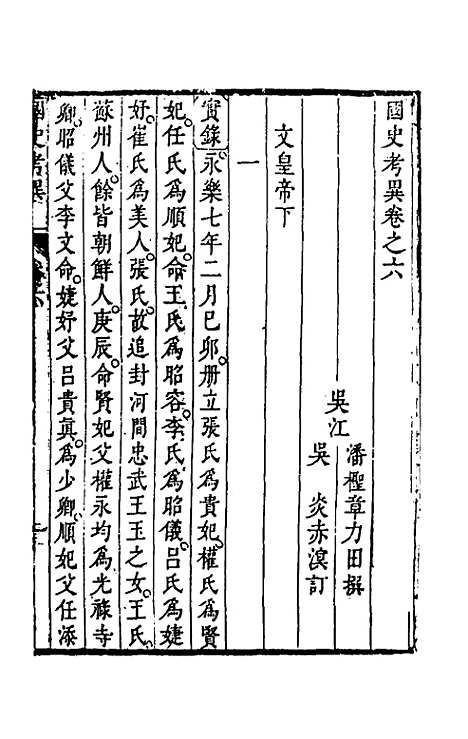 國史考異卷之六
吳江
潘檉章力田撰
吳 炎赤溟訂
文皇帝下
一
實錄永樂七年二月己卯。册立張氏為貴妃。權氏為賢
妃。任氏為順妃。命王氏為昭容。李氏為昭儀。呂氏為婕
妤。崔氏為美人。張氏。故追封河間忠武王玉之女。王氏。
蘇州人。餘皆朝鮮人。庚辰。命賢妃父權永均為光祿寺
卿。昭儀父李文命。婕妤父呂貴真。為少卿。順妃父任添
國史考異